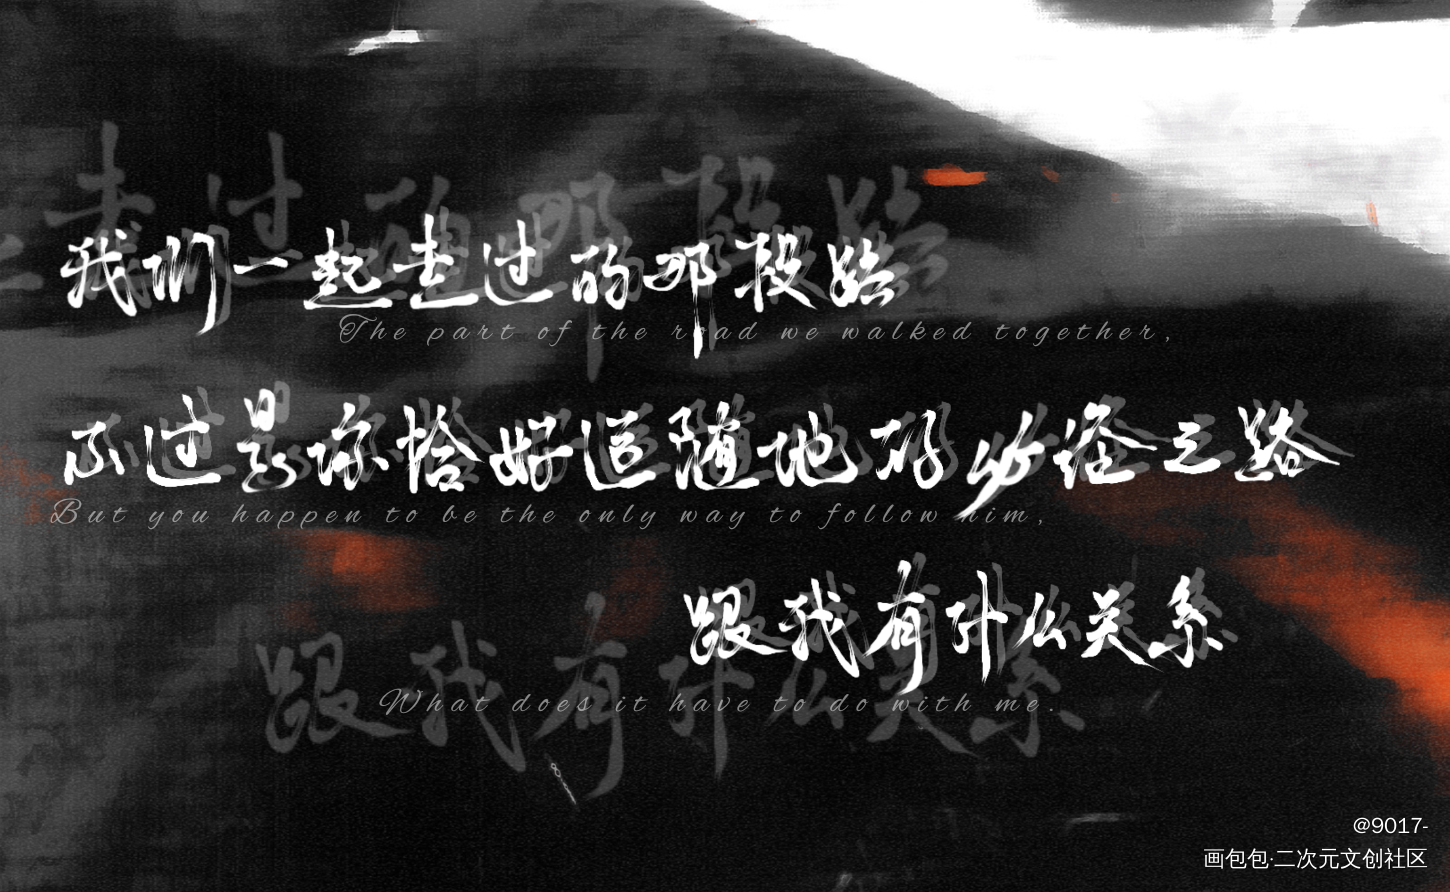 我们一起走过的那段路
The part of the road we walked together,
不过是你恰好追随他的必经之路
But you happen to be the only way to follow him,
跟我有什么关系
What does it have to do with me.
@9017-
画包包·二次元文创社区